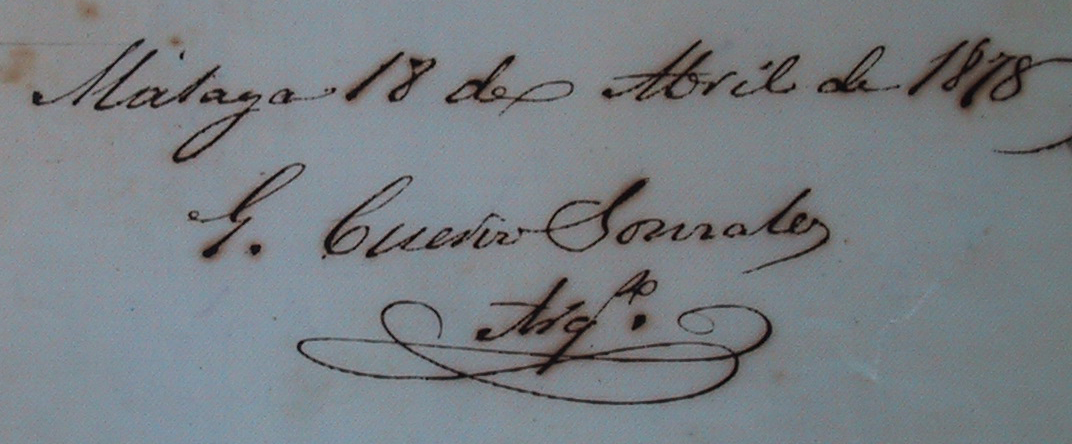 Málaga 18 de Abril de 1878
G. Cuervo Gonzalez
Arq.to